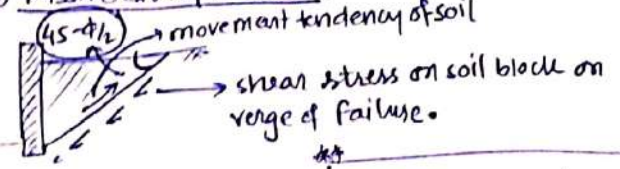 45-ϕ/2
movement tendency of soil
shear stress on soil block on
verge of failure.